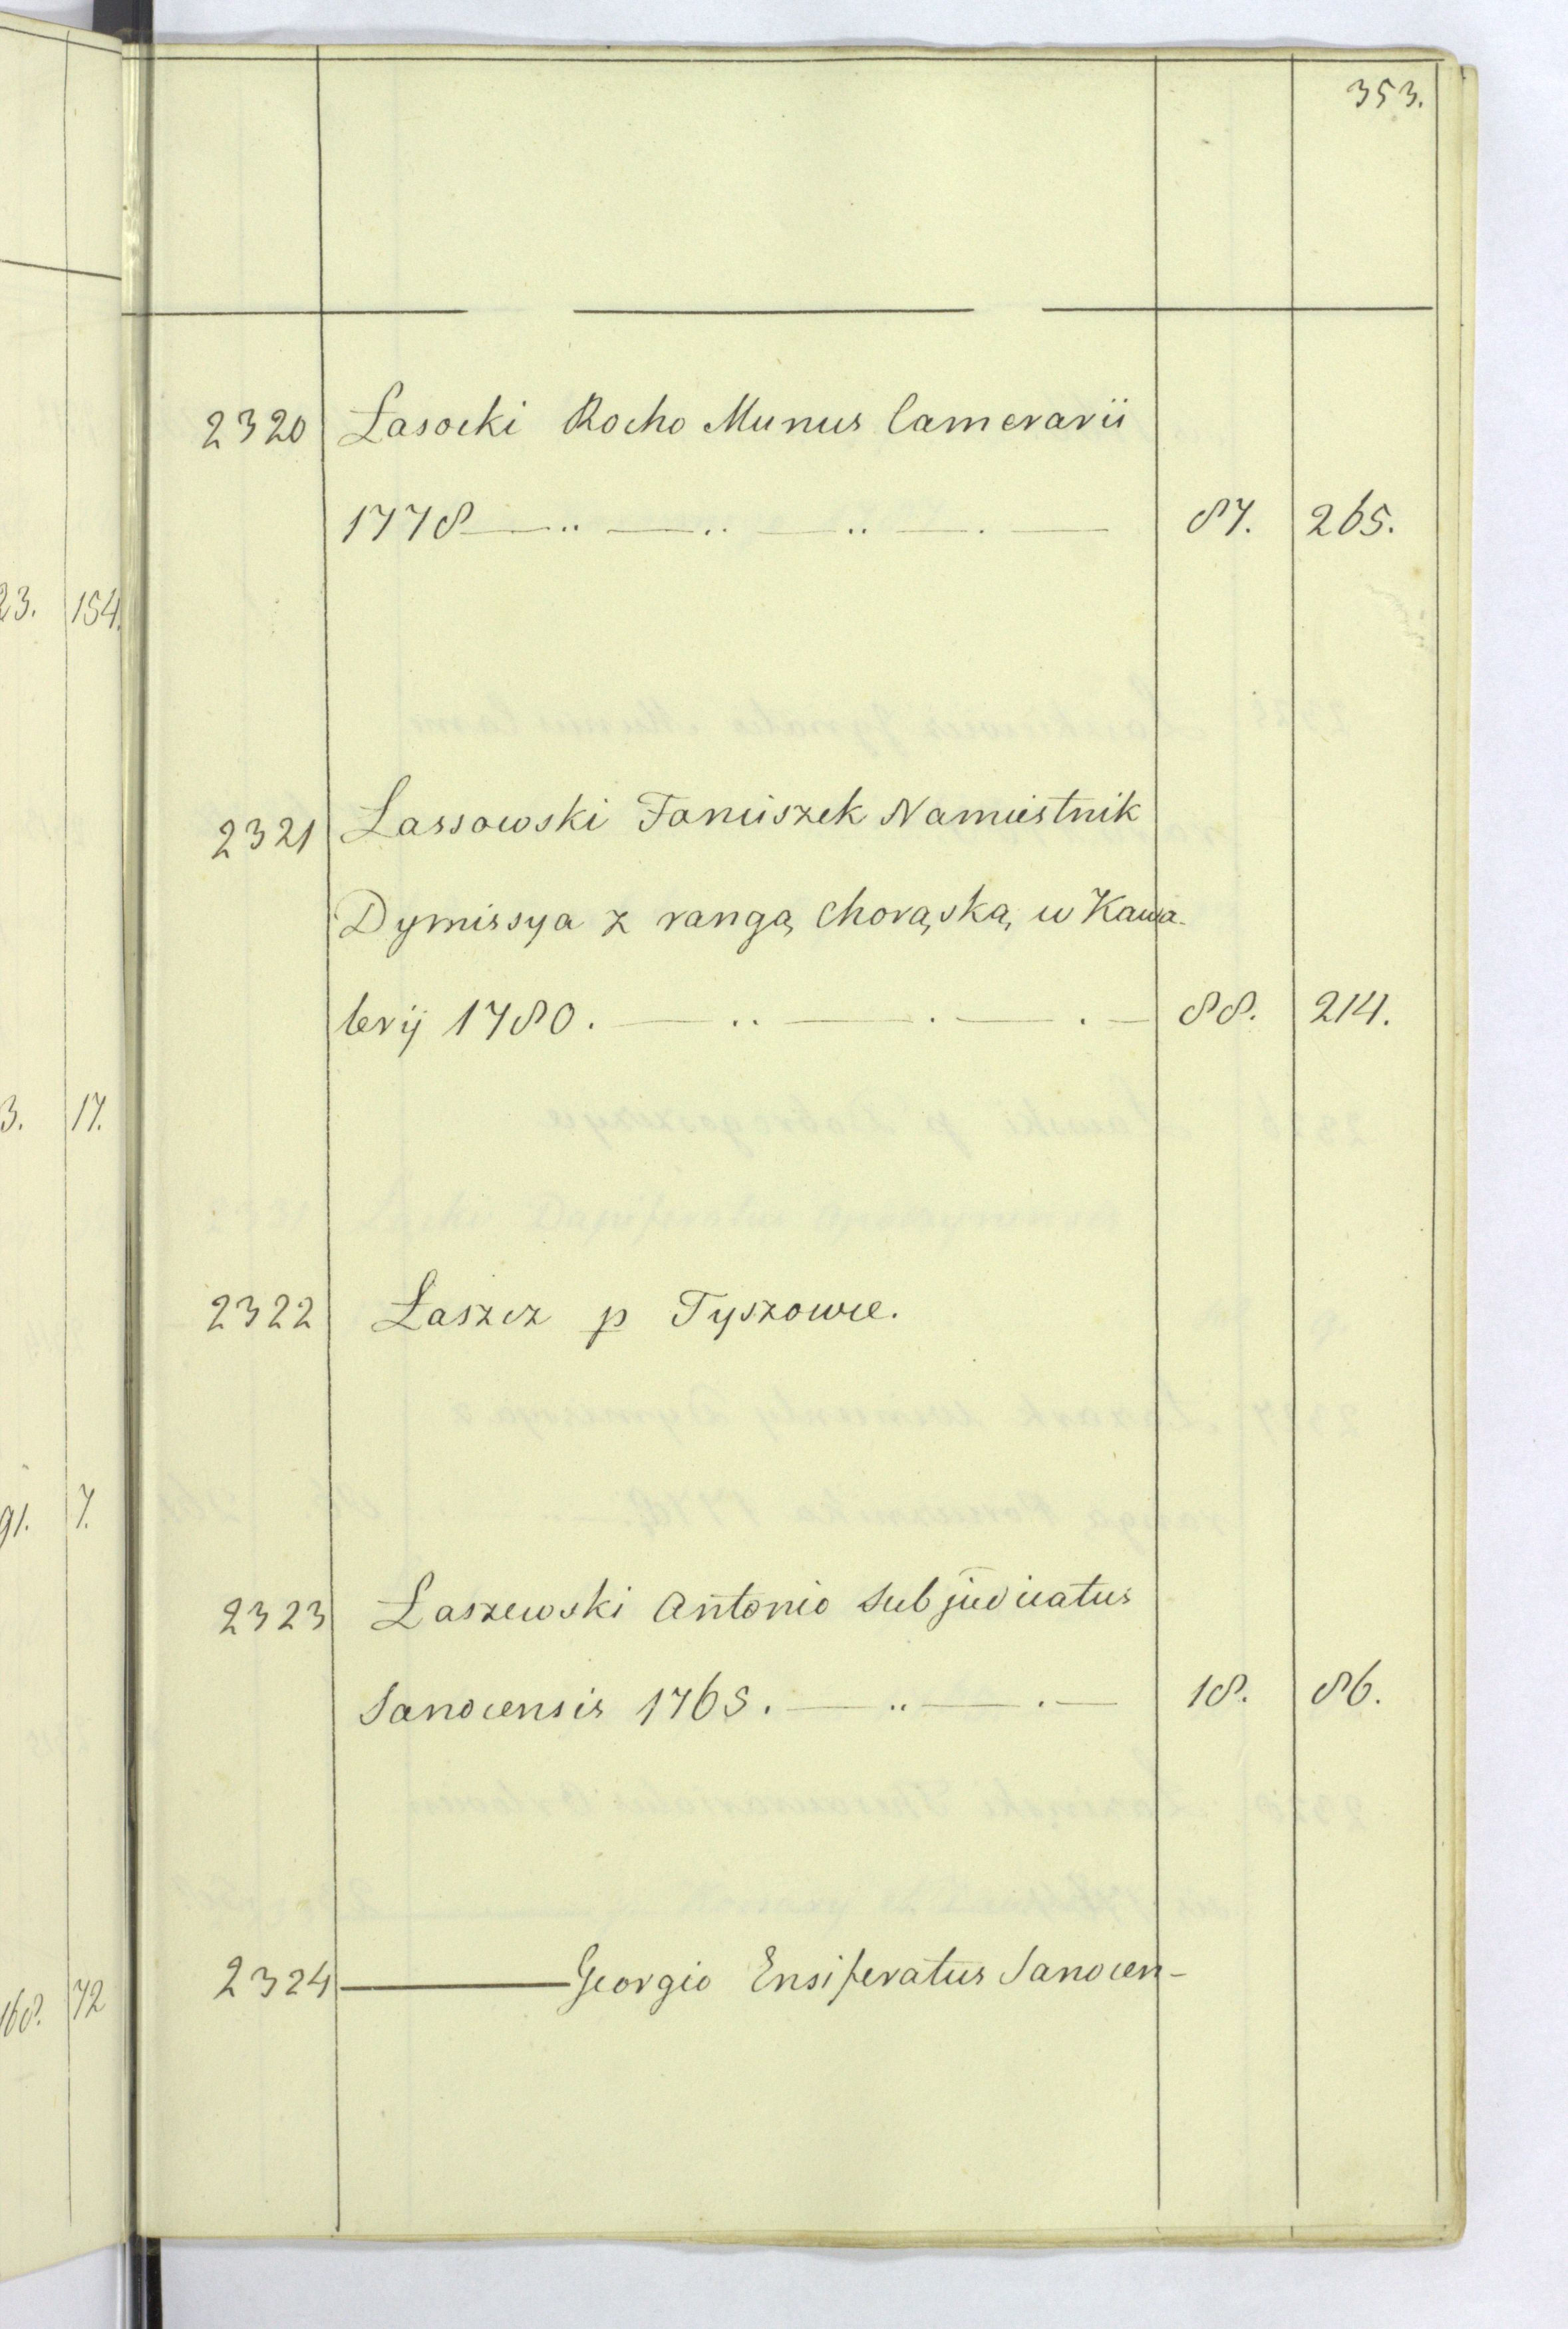 353.
2320 Łasocki Rocho Munus Camerarii
1778 — .. — .. — .. — . — 87. 265.
23. 154.
2321 Lassowski Fanciszek Namiestnik
Dymissya z rangą chorąską w Kawa-
leryj 1780. — .. — . — . — 88. 214.
3. 17.
2322 Łaszcz p Tyszowce.
91. 7.
2323 Łaszewski Antonio Subjudicatus
Sanocensis 1765. — .. — . — 18. 86.
2324 ——— Georgio Ensiferatus Sanocen-
168. 72